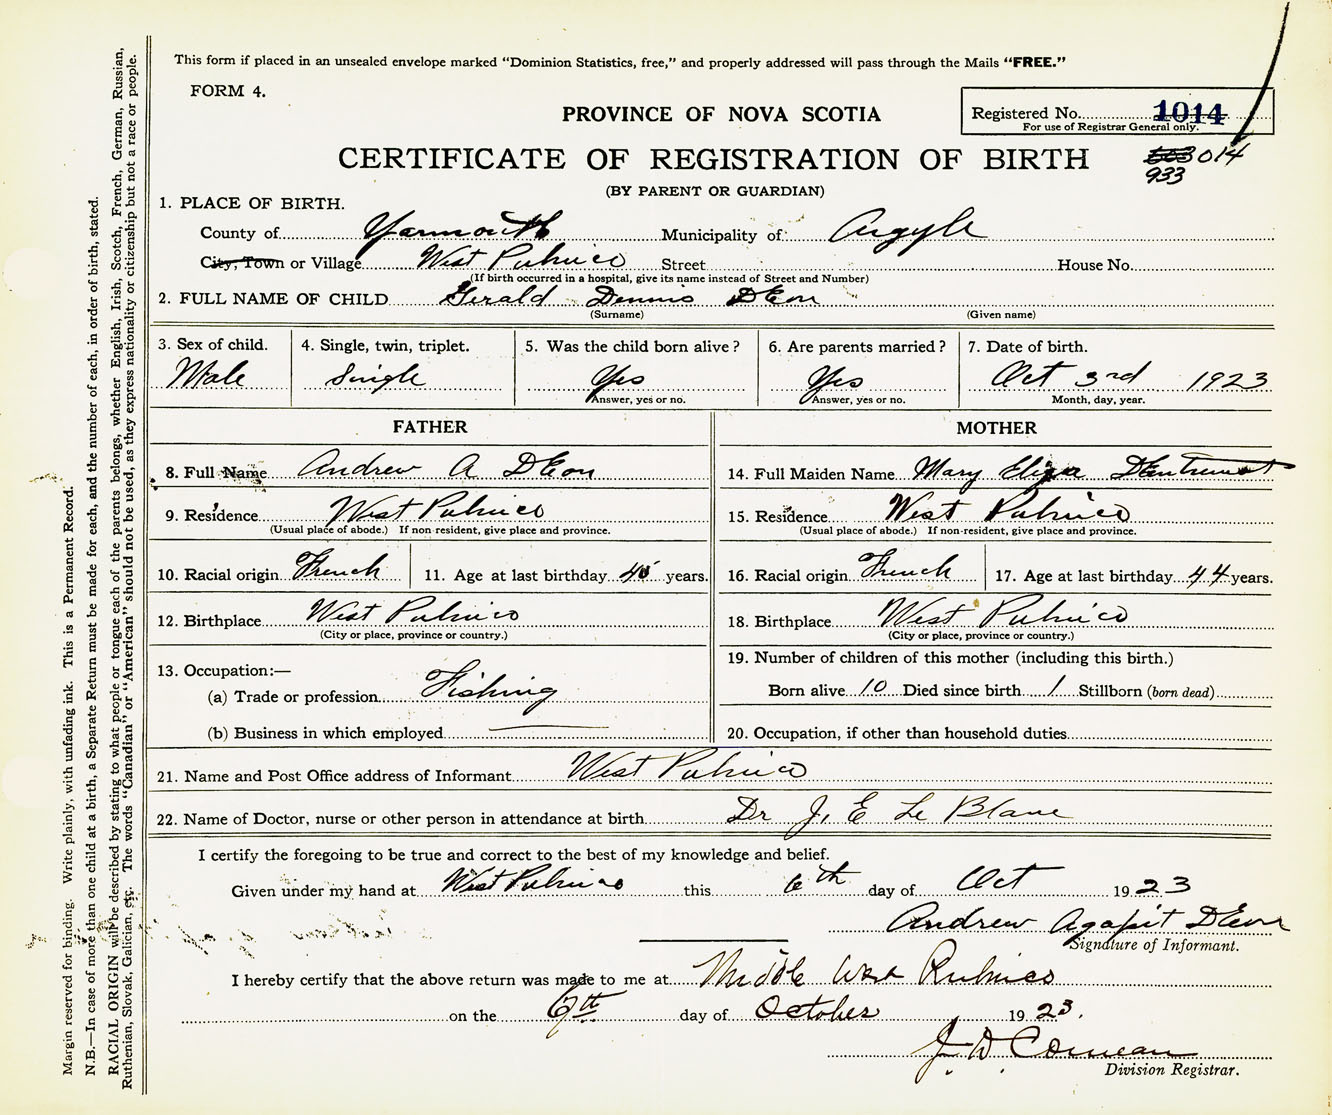 This form if placed in an unsealed envelope marked "Dominion Statistics, free," and properly addressed will pass through the Mails "FREE."
FORM 4.
PROVINCE OF NOVA SCOTIA
Registered No. 1014
For use of Registrar General only.
CERTIFICATE OF REGISTRATION OF BIRTH
014
933
(BY PARENT OR GUARDIAN)
1. PLACE OF BIRTH.
County of Yarmouth Municipality of Argyle
City, Town or Village West Pubnico Street House No.
(If birth occurred in a hospital, give its name instead of Street and Number)
2. FULL NAME OF CHILD Gerald Dennis DEon
(Surname) (Given name)
3. Sex of child. 4. Single, twin, triplet. 5. Was the child born alive? 6. Are parents married? 7. Date of birth.
Male Single Yes Yes Oct 3rd 1923
Answer, yes or no. Answer, yes or no. Month, day, year.
FATHER MOTHER
8. Full Name Andrew A DEon 14. Full Maiden Name Mary Eliza DEntremont
9. Residence West Pubnico 15. Residence West Pubnico
(Usual place of abode.) If non-resident, give place and province. (Usual place of abode.) If non-resident, give place and province.
10. Racial origin French 11. Age at last birthday years. 16. Racial origin French 17. Age at last birthday 44 years.
12. Birthplace West Pubnico 18. Birthplace West Pubnico
(City or place, province or country.) (City or place, province or country.)
13. Occupation:— 19. Number of children of this mother (including this birth.)
(a) Trade or profession Fishing Born alive 10 Died since birth 1 Stillborn (born dead)
(b) Business in which employed 20. Occupation, if other than household duties
21. Name and Post Office address of Informant West Pubnico
22. Name of Doctor, nurse or other person in attendance at birth Dr J. E Le Blanc
I certify the foregoing to be true and correct to the best of my knowledge and belief.
Given under my hand at West Pubnico this 6th day of Oct 1923
Andrew Agapit DEon
Signature of Informant.
I hereby certify that the above return was made to me at Middle West Pubnico
on the 6th day of October 1923.
J. D. Comeau
Division Registrar.
Margin reserved for binding. Write plainly, with unfading ink. This is a Permanent Record.
N.B.—In case of more than one child at a birth, a Separate Return must be made for each, and the number of each, in order of birth, stated.
RACIAL ORIGIN will be described by stating to what people or tongue each of the parents belongs, whether English, Irish, Scotch, French, German, Russian,
Ruthenian, Slovak, Galician, etc. The words "Canadian" or "American" should not be used, as they express nationality or citizenship but not a race or people.